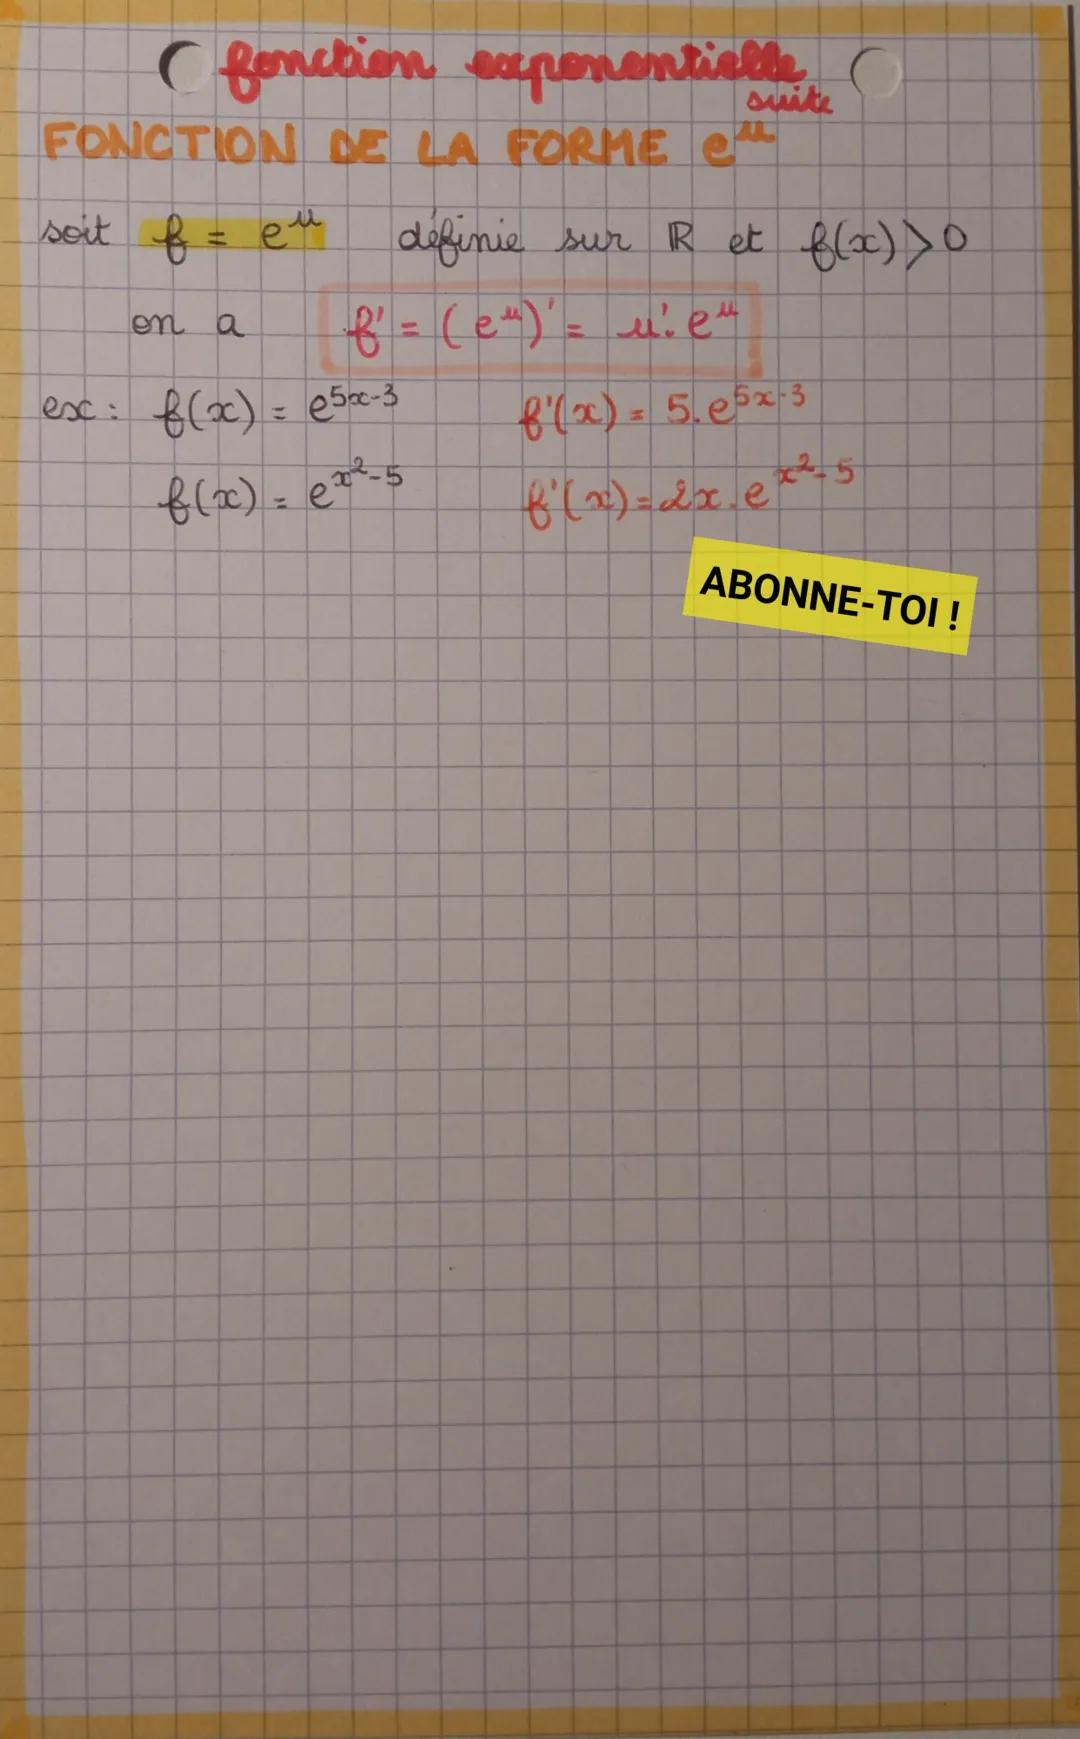 fonction exponentielle
suite
FONCTION DE LA FORME eᵘ
soit f = eᵘ définie sur ℝ et f(x)>0
on a f' = (eᵘ)' = u'. eᵘ
ex : f(x) = e⁵ˣ⁻³ f'(x) = 5. e⁵ˣ⁻³
f(x) = e^x²-5 f'(x) = 2x. e^x²-5
ABONNE-TOI !